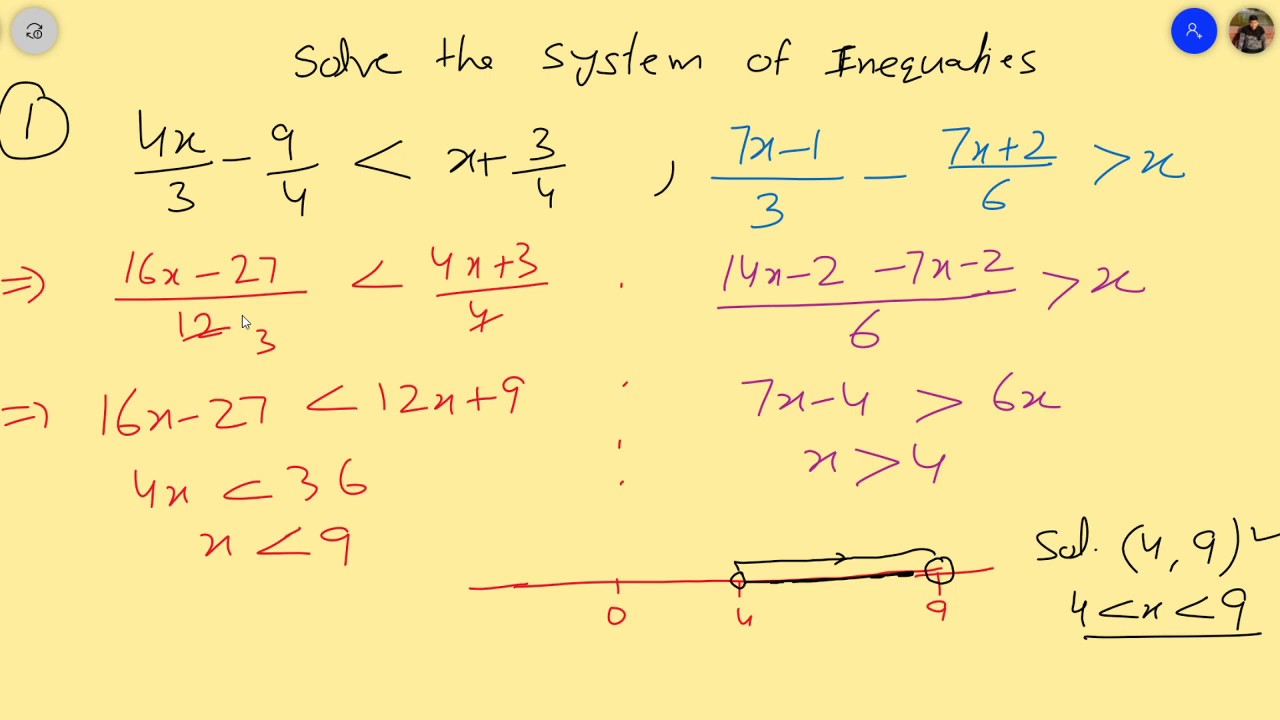 Solve the System of Inequaties
1
4x/3 - 9/4 < x + 3/4 , 7x-1/3 - 7x+2/6 > x
=> 16x-27/12 3 < 4x+3/4 . 14x-2 -7x-2/6 > x
=> 16x-27 < 12x+9 7x-4 > 6x
4x < 36 x > 4
x < 9
Sol. (4, 9)
0 4 9
4 < x < 9